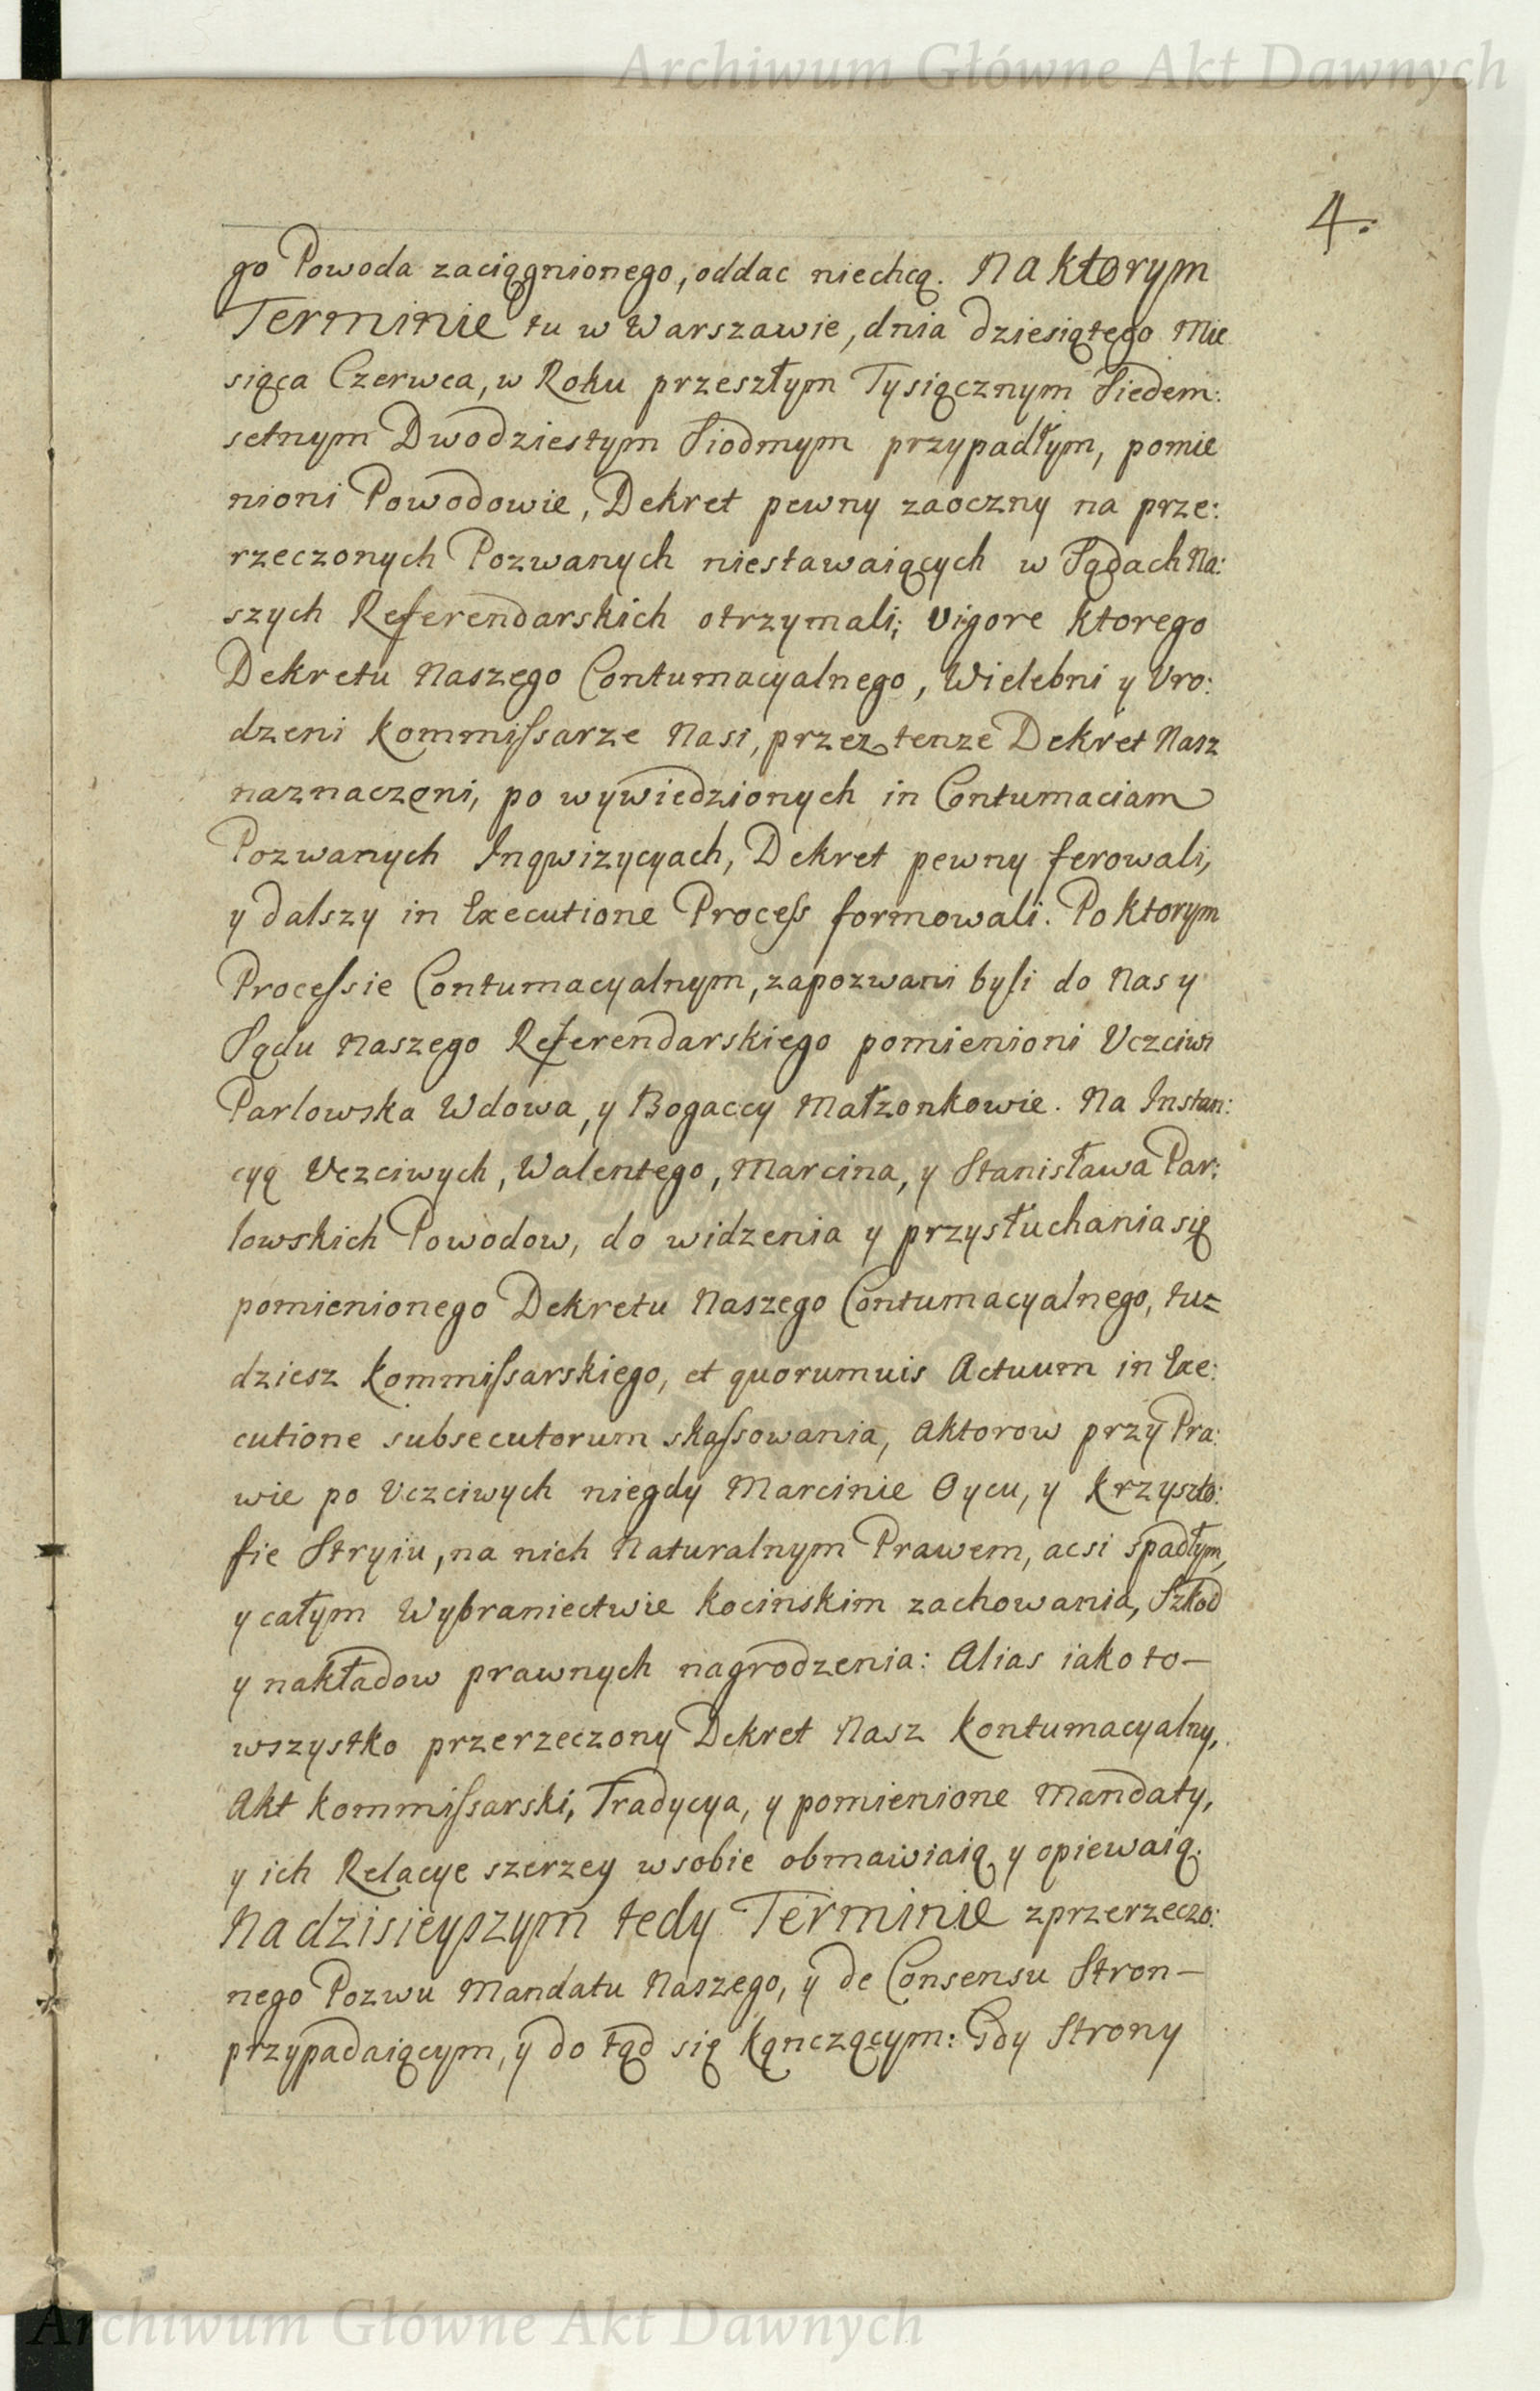 Archiwum Główne Akt Dawnych
4.
go Powoda zaciągnionego, oddac niechcą. Na ktorym
Terminie tu w Warszawie, dnia dziesiątego Mie
siąca Czerwca, w Roku przeszłym Tysiącznym Siedem:
setnym Dwodziestym Siodmym przypadłym, pomie
nioni Powodowie, Dekret pewny zaoczny na prze:
rzeczonych Pozwanych niestawaiących w Sądach Na:
szych Referendarskich otrzymali; vigore ktorego
Dekretu Naszego Contumacyalnego, Wielebni y Vro:
dzeni Kommiſsarze Nasi, przez tenze Dekret Nasz
naznaczeni, po wywiedzionych in Contumaciam
Pozwanych Inqwizycyach, Dekret pewny ferowali,
y dalszy in Executione Proceſs formowali. Po ktorym
Proceſsie Contumacyalnym, zapozwani byli do Nas y
Sądu Naszego Referendarskiego pomienioni Vczciwi
Parlowska Wdowa, y Bogaccy Małzonkowie. Na Instan:
cyą Vczciwych, Walentego, Marcina, y Stanisława Par:
lowskich Powodow, do widzenia y przysłuchania się
pomienionego Dekretu Naszego Contumacyalnego, tu=
dziesz Kommiſsarskiego, et quorumuis Actuum in Exe:
cutione subsecutorum skaſsowania, Aktorow przy Pra:
wie po Vczciwych niegdy Marcinie Oycu, y Krzyszto:
fie Stryiu, na nich Naturalnym Prawem, acsi spadłym,
y całym Wybraniectwie Kocinskim zachowania, Szkod
y nakładow prawnych nagrodzenia: Alias iako to—
wszystko przerzeczony Dekret Nasz Kontumacyalny,
Akt Kommiſsarski, Tradycya, y pomienione Mandaty,
y ich Relacye szerzey wsobie obmawiaią y opiewaią.
Na dzisieyszym tedy Terminie z przerzeczo:
nego Pozwu Mandatu Naszego, y de Consensu Stron—
przypadaiącym, y do tąd się kączącym: Gdy Strony
Archiwum Główne Akt Dawnych